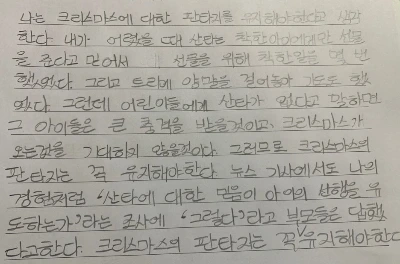 나는 크리스마스에 대한 판타지를 유지해야한다고 생각
한다. 내가 어렸을 때 산타는 착한아이에게만 선물
을 준다고 믿어서 선물을 위해 착한일을 몇 번
했었다. 그리고 트리에 양말을 걸어놓아 기도도 했
었다. 그런데 어린이들에게 산타가 없다고 말하면
그 아이들은 큰 충격을 받을것이고, 크리스마스가
오는것을 기대하지 않을것이다. 그러므로 크리스마스의
판타지는 꼭 유지해야한다. 뉴스 기사에서도 나의
경험처럼 '산타에 대한 믿음이 아이의 선행을 유
도하는가'라는 조사에 '그렇다'라고 부모들은 답했
다고한다. 크리스마스의 판타지는 꼭 유지해야한다